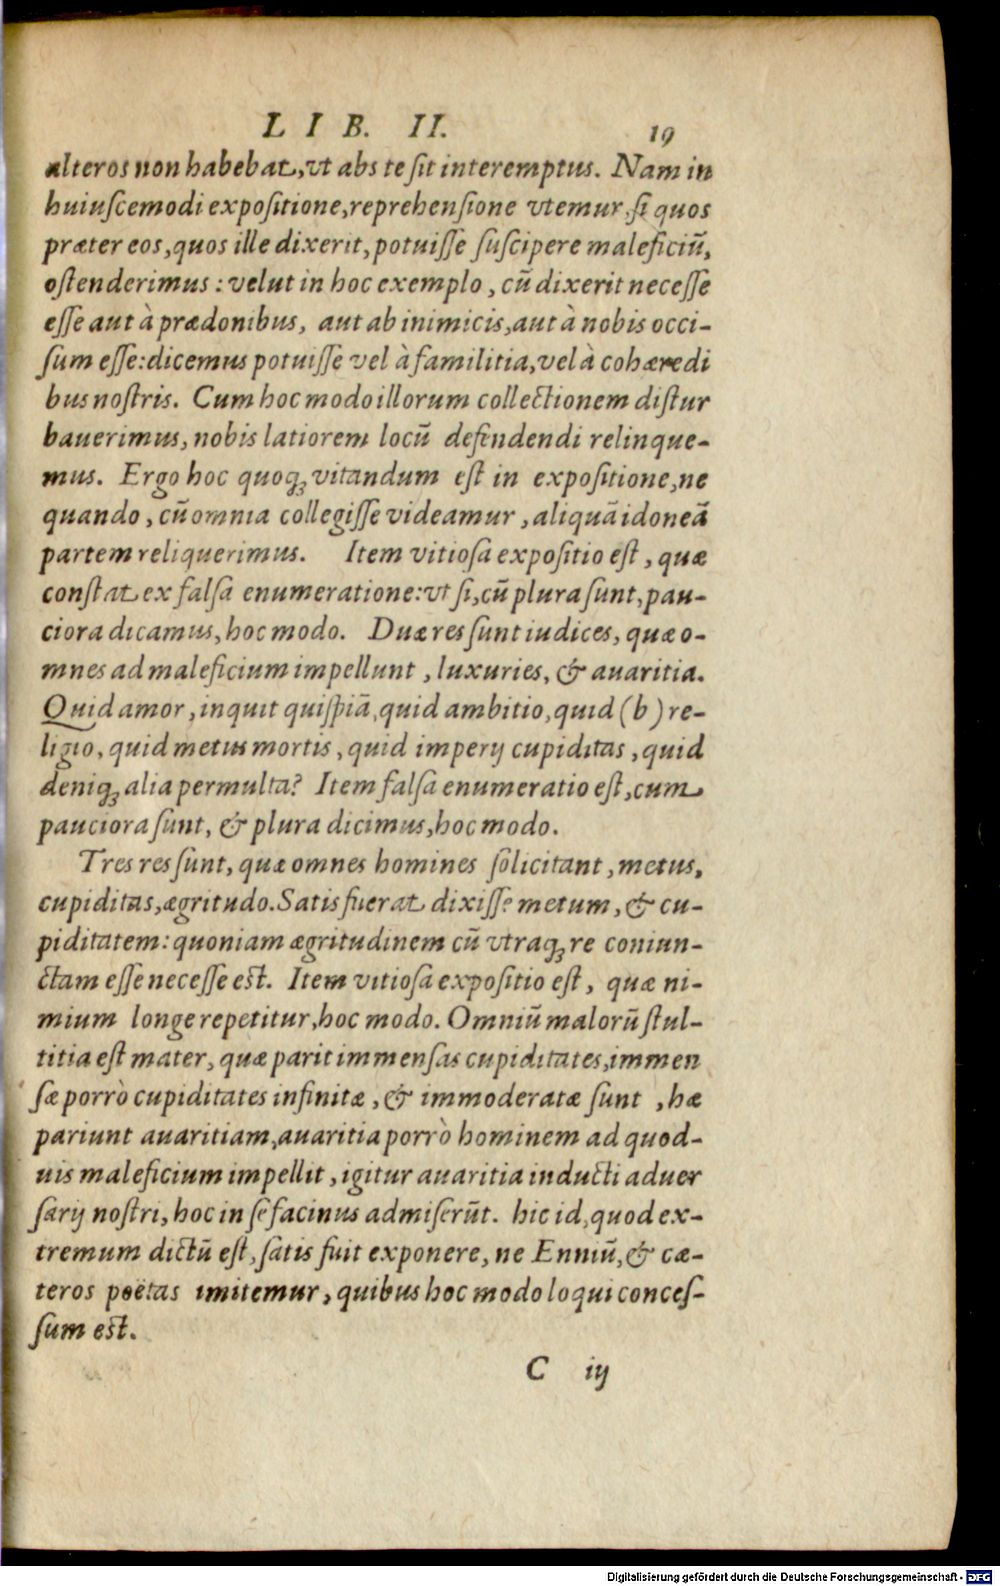 LIB. II. 19
alteros non habebat, vt abs te sit interemptus. Nam in
huiuscemodi expositione, reprehensione vtemur, si quos
præter eos, quos ille dixerit, potuisse suscipere maleficiũ,
ostenderimus: velut in hoc exemplo, cũ dixerit necesse
esse aut à prædonibus, aut ab inimicis, aut à nobis occi-
sum esse: dicemus potuisse vel à familitia, vel à cohæredi
bus nostris. Cum hoc modo illorum collectionem distur
bauerimus, nobis latiorem locũ defendendi relinque-
mus. Ergo hoc quoq; vitandum est in expositione, ne
quando, cũ omnia collegisse videamur, aliquã idoneã
partem reliquerimus. Item vitiosa expositio est, quæ
constat ex falsa enumeratione: vt si, cũ plura sunt, pau-
ciora dicamus, hoc modo. Duæ res sunt iudices, quæ o-
mnes ad maleficium impellunt, luxuries, & auaritia.
Quid amor, inquit quispiã, quid ambitio, quid (b) re-
ligio, quid metus mortis, quid imperij cupiditas, quid
deniq; alia permulta? Item falsa enumeratio est, cum
pauciora sunt, & plura dicimus, hoc modo.
Tres res sunt, quæ omnes homines solicitant, metus,
cupiditas, ægritudo. Satis fuerat dixisse metum, & cu-
piditatem: quoniam ægritudinem cũ vtraq; re coniun-
ctam esse necesse est. Item vitiosa expositio est, quæ ni-
mium longe repetitur, hoc modo. Omniũ malorũ stul-
titia est mater, quæ parit immensas cupiditates, immen
sæ porrò cupiditates infinitæ, & immoderatæ sunt, hæ
pariunt auaritiam, auaritia porrò hominem ad quod-
uis maleficium impellit, igitur auaritia inducti aduer
sarij nostri, hoc in se facinus admiserũt. hic id, quod ex-
tremum dictũ est, satis fuit exponere, ne Enniũ, & cæ-
teros poëtas imitemur, quibus hoc modo loqui conces-
sum est.
C iij
Digitalisierung gefördert durch die Deutsche Forschungsgemeinschaft - DFG